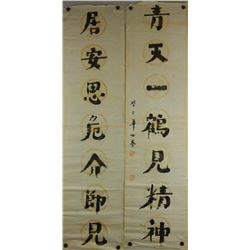 青天一鶴見精神
居安思危介師見